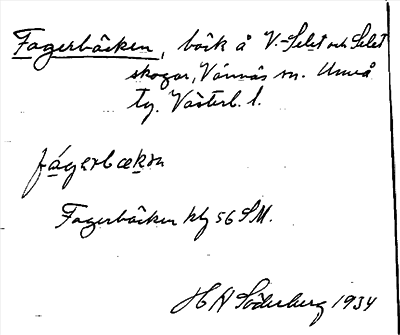 Fagerbäcken, bäck å V.-Selet och Selet
skogar, Vännäs sn. Umeå
tg. Västerb. l.
fágərbækən
Fagerbäcken kbl 56 S.M.
H A Söderberg 1934